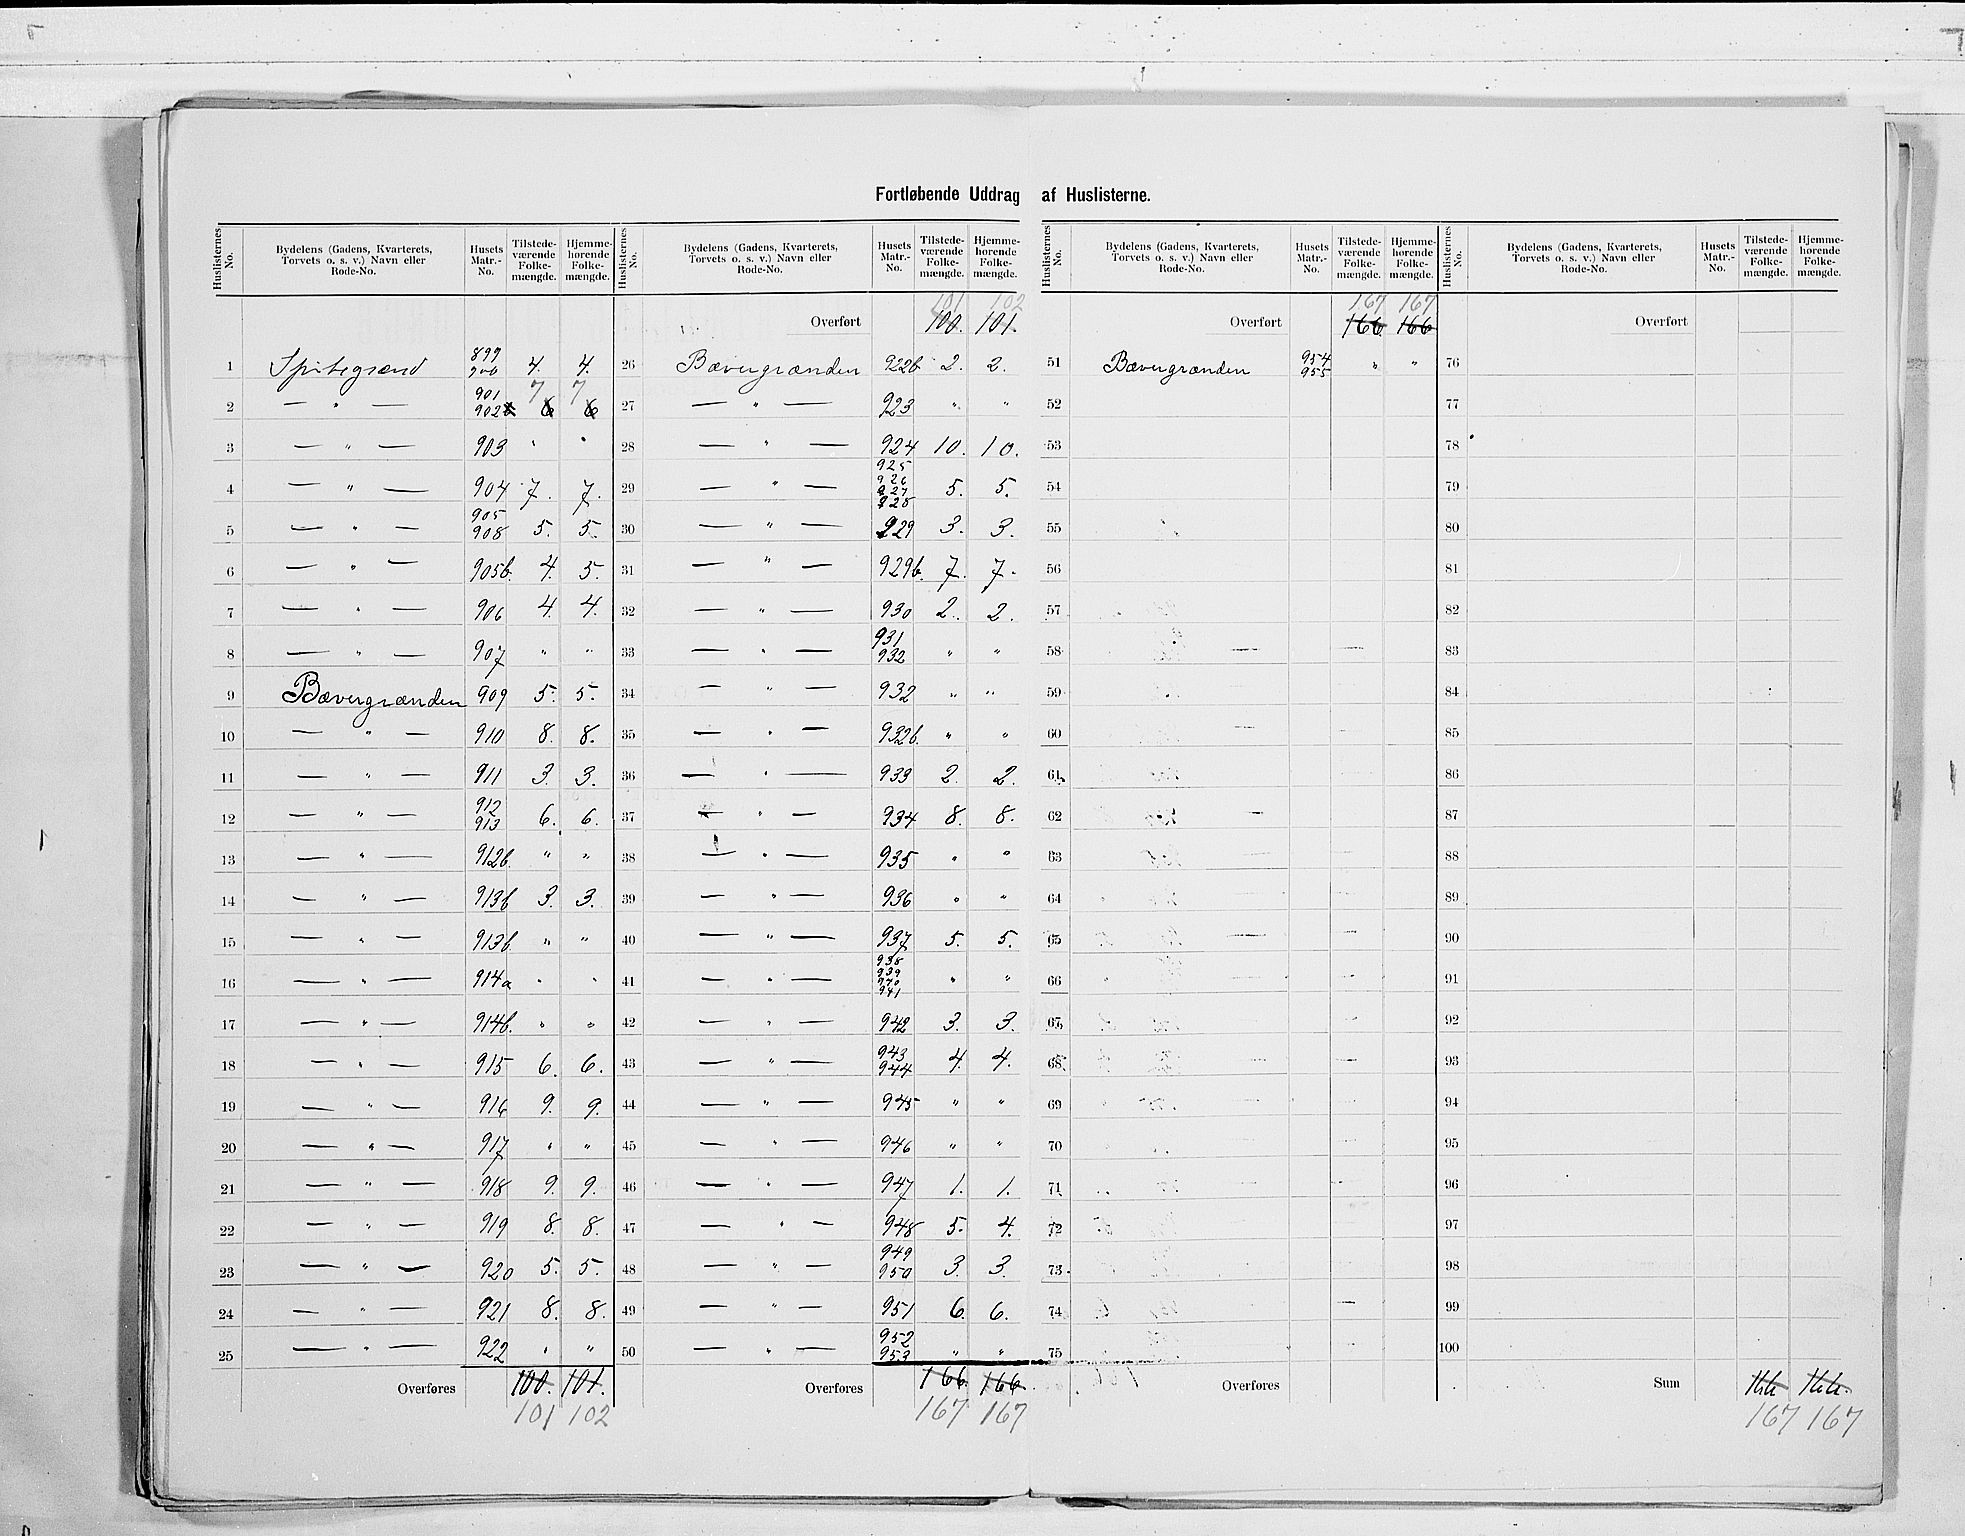 Fortløbende Uddrag af Huslisterne.
Huslisternes No. | Bydelens (Gadens, Kvarterets, Torvets o. s. v.) Navn eller Rode-No. | Husets Matr.-No. | Tilstedeværende Folkemængde. | Hjemmehørende Folkemængde.
1 Spitegrænd 899 900 4. 4.
2 — " — 901 902 6 7 6 7
3 — " — 903 " "
4 — " — 904 7. 7.
5 — " — 905 908 5. 5.
6 — " — 905b. 4. 5.
7 — " — 906 4. 4.
8 — " — 907 " "
9 Bævergrænden 909 5. 5.
10 — " — 910 8. 8.
11 — " — 911 3. 3.
12 — " — 912 913 6. 6.
13 — " — 912b. " "
14 — " — 913b 3. 3.
15 — " — 913b. " "
16 — " — 914a " "
17 — " — 914b. " "
18 — " — 915 6. 6.
19 — " — 916 9. 9.
20 — " — 917 " "
21 — " — 918 9. 9.
22 — " — 919 8. 8.
23 — " — 920 5. 5.
24 — " — 921 8. 8.
25 — " — 922 " "
Overføres 100. 101.
101 102
Huslisternes No. | Bydelens (Gadens, Kvarterets, Torvets o. s. v.) Navn eller Rode-No. | Husets Matr.-No. | Tilstedeværende Folkemængde. | Hjemmehørende Folkemængde.
101 102
Overført 100. 101.
26 Bævergrænden 922b 2. 2.
27 — " — 923 " "
28 — " — 924 10. 10.
29 — " — 925 926 927 928 5. 5.
30 — " — 929 3. 3.
31 — " — 929b. 7. 7.
32 — " — 930 2. 2.
33 — " — 931 932 " "
34 — " — 932 " "
35 — " — 932b. " "
36 — " — 933 2. 2.
37 — " — 934 8. 8.
38 — " — 935 " "
39 — " — 936 " "
40 — " — 937 5. 5.
41 — " — 938 939 940 941 " "
42 — " — 942 3. 3.
43 — " — 943 944 4. 4.
44 — " — 945 " "
45 — " — 946 " "
46 — " — 947 1. 1.
47 — " — 948 5. 4.
48 — " — 949 950 3. 3.
49 — " — 951 6. 6.
50 — " — 952 953 " "
Overføres 166. 166.
167 167
Huslisternes No. | Bydelens (Gadens, Kvarterets, Torvets o. s. v.) Navn eller Rode-No. | Husets Matr.-No. | Tilstedeværende Folkemængde. | Hjemmehørende Folkemængde.
167 167
Overført 166 166
51 Bævergrænden 954 955 " "
52
53
54
55
56
57
58
59
60
61
62
63
64
65
66
67
68
69
70
71
72
73
74
75
Overføres
Huslisternes No. | Bydelens (Gadens, Kvarterets, Torvets o. s. v.) Navn eller Rode-No. | Husets Matr.-No. | Tilstedeværende Folkemængde. | Hjemmehørende Folkemængde.
Overført
76
77
78
79
80
81
82
83
84
85
86
87
88
89
90
91
92
93
94
95
96
97
98
99
100
Sum 166 166.
167 167